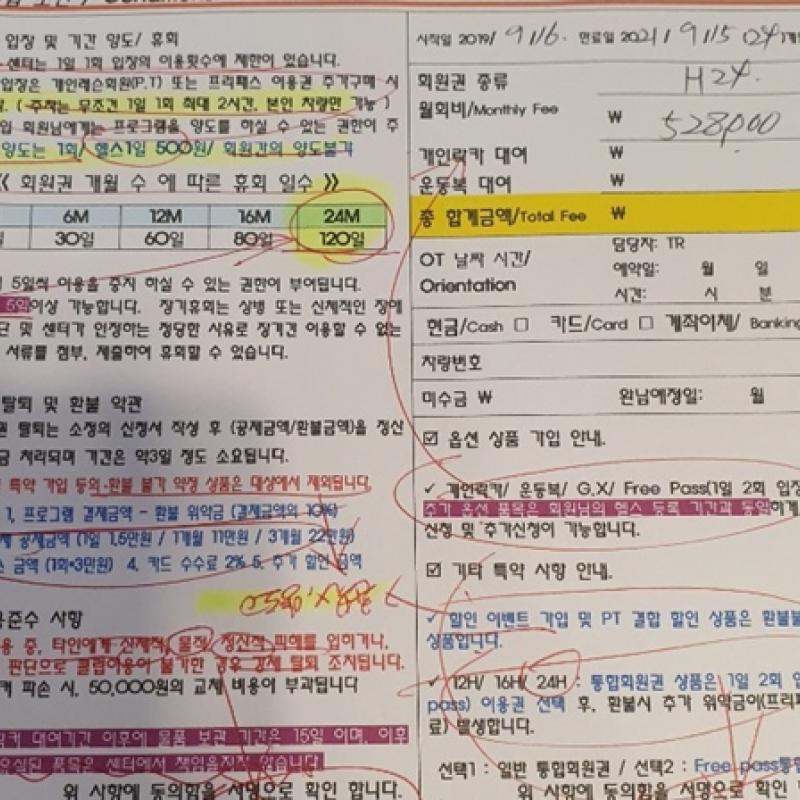 입장 및 기간 양도/ 휴회
센터는 1일 1회 입장의 이용횟수에 제한이 있습니다.
입장은 개인레슨회원(P.T) 또는 프리패스 이용권 추가구매 시
( 주차는 무조건 1일 1회 최대 2시간, 본인 차량만 가능 )
회원님에게는 프로그램을 양도를 하실 수 있는 권한이 주
양도는 1회/ 헬스1일 500원/ 회원간의 양도불가
《 회원권 개월 수 에 따른 휴회 일수 》
6M 12M 16M 24M
30일 60일 80일 120일
5일씩 이용을 중지 하실 수 있는 권한이 부여됩니다.
5일이상 가능합니다. 장기휴회는 상병 또는 신체적인 장애
단 및 센터가 인정하는 정당한 사유로 장기간 이용할 수 없는
서류를 첨부, 제출하여 휴회할 수 있습니다.
탈퇴 및 환불 약관
권 탈퇴는 소정의 신청서 작성 후 (공제금액/환불금액)을 정산
금 처리되며 기간은 약3일 정도 소요됩니다.
특약 가입 동의·환불 불가 약정 상품은 대상에서 제외됩니다.
1. 프로그램 결제금액 - 환불 위약금 (결제금액의 10%)
공제금액 (1일 1.5만원 / 1개월 11만원 / 3개월 22만원)
금액 (1회*3만원) 4. 카드 수수료 2% 5. 추가 할인 금액
준수 사항
용 중, 타인에게 신체적, 물적, 정신적 피해를 입히거나,
판단으로 클럽이용이 불가한 경우 강제 탈퇴 조치됩니다.
키 파손 시, 50,000원의 교체 비용이 부과됩니다
락커 대여기간 이후에 물품 보관 기간은 15일 이며, 이후
유실된 품목은 센터에서 책임을지지 않습니다.
위 사항에 동의함을 서명으로 확인 합니다.
시작일 2019/ 9/16. 만료일 2021/ 9/15
회원권 종류 H24.
월회비/Monthly Fee ₩ 528,000
개인락카 대여 ₩
운동복 대여 ₩
총 합계금액/Total Fee ₩
OT 날짜 시간/
Orientation
담당자: TR
예약일: 월 일
시간: 시 분
현금/Cash □ 카드/Card □ 계좌이체/ Banking
차량번호
미수금 ₩ 완납예정일: 월
☑ 옵션 상품 가입 안내.
✓ 개인락카/ 운동복/ G.X/ Free Pass(1일 2회 입장
추가 옵션 품목은 회원님의 헬스 등록 기간과 동일하게
신청 및 추가신청이 가능합니다.
☑ 기타 특약 사항 안내.
✓ 할인 이벤트 가입 및 PT 결합 할인 상품은 환불불
상품입니다.
✓ 12H/ 16H/ 24H : 통합회원권 상품은 1일 2회 입
pass) 이용권 선택 후, 환불시 추가 위약금이(프리패
료) 발생합니다.
선택1 : 일반 통합회원권 / 선택2 : Free pass통합
위 사항에 동의함을 서명으로 확인